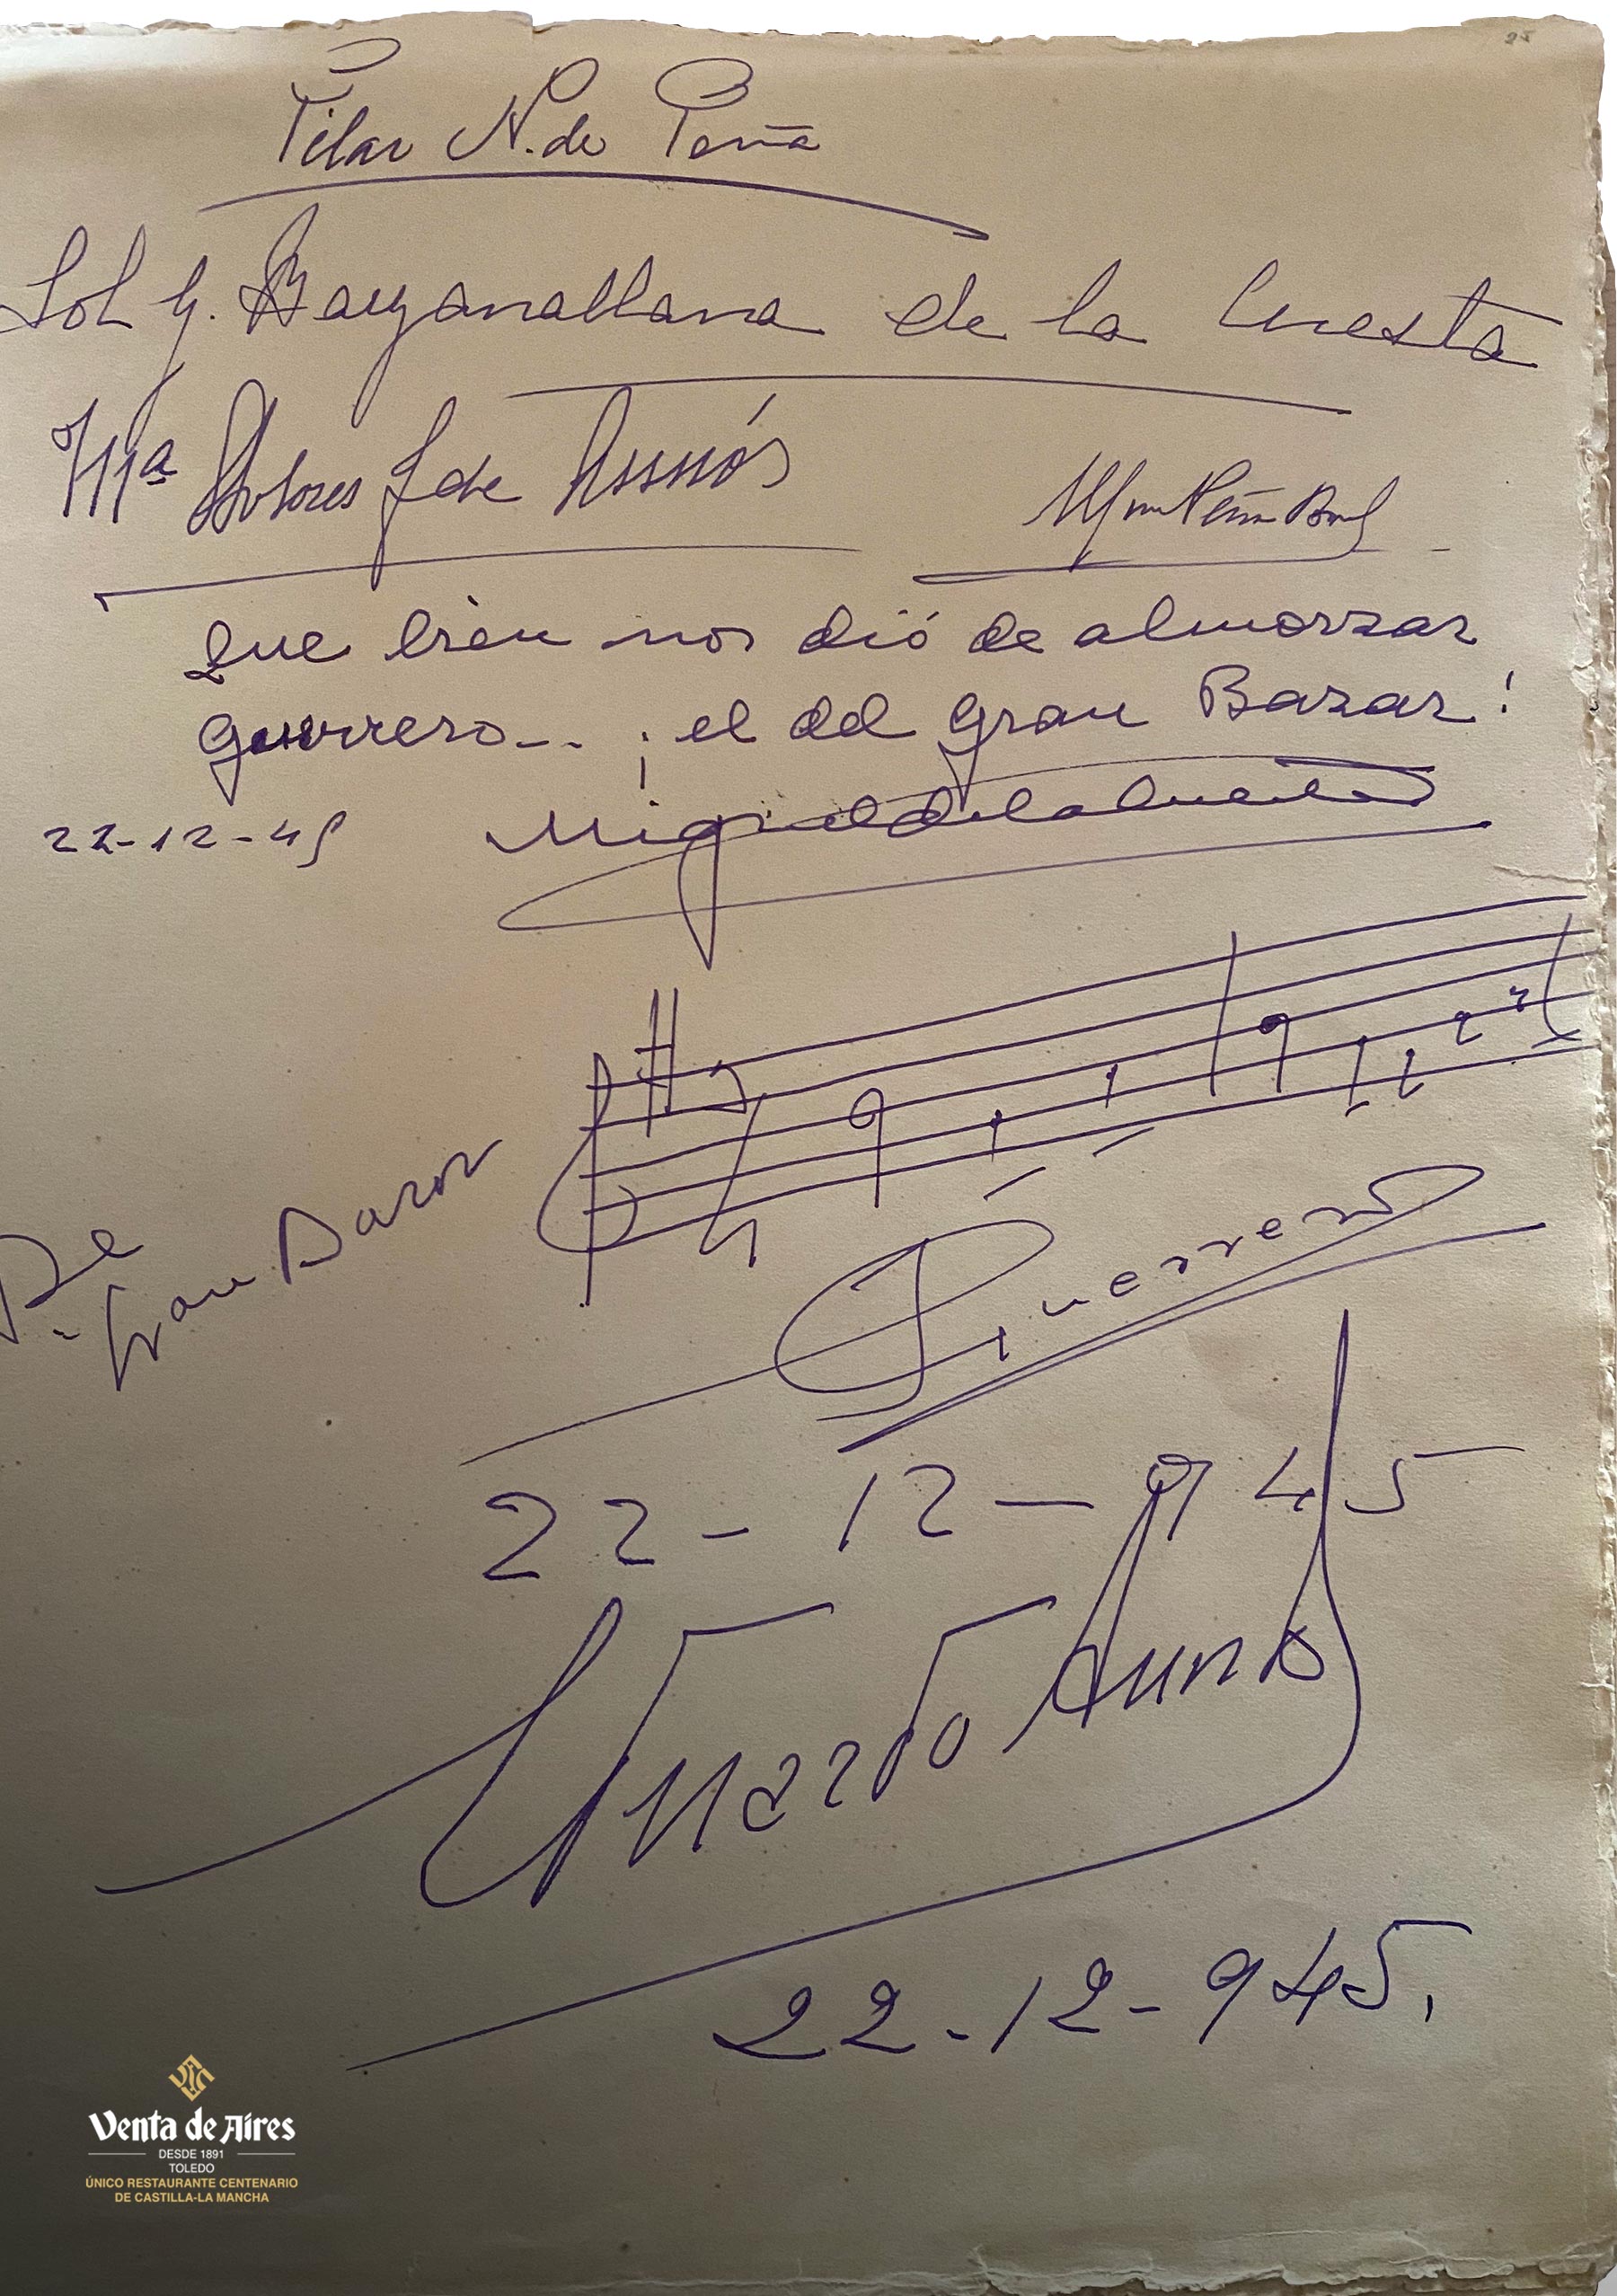 Pilar N. de Peña
Sol G. Barzanallana de la Cuesta
Mª Dolores J de Aunós
Que bien nos dió de almorzar
guerrero... ¡el del gran Bazar!
22-12-45
Migueldelacuesta
De
"Gran Bazar"
Guerrero
22-12-945
Eduardo Aunós
22-12-945.
Venta de Aires
DESDE 1891
TOLEDO
ÚNICO RESTAURANTE CENTENARIO
DE CASTILLA-LA MANCHA